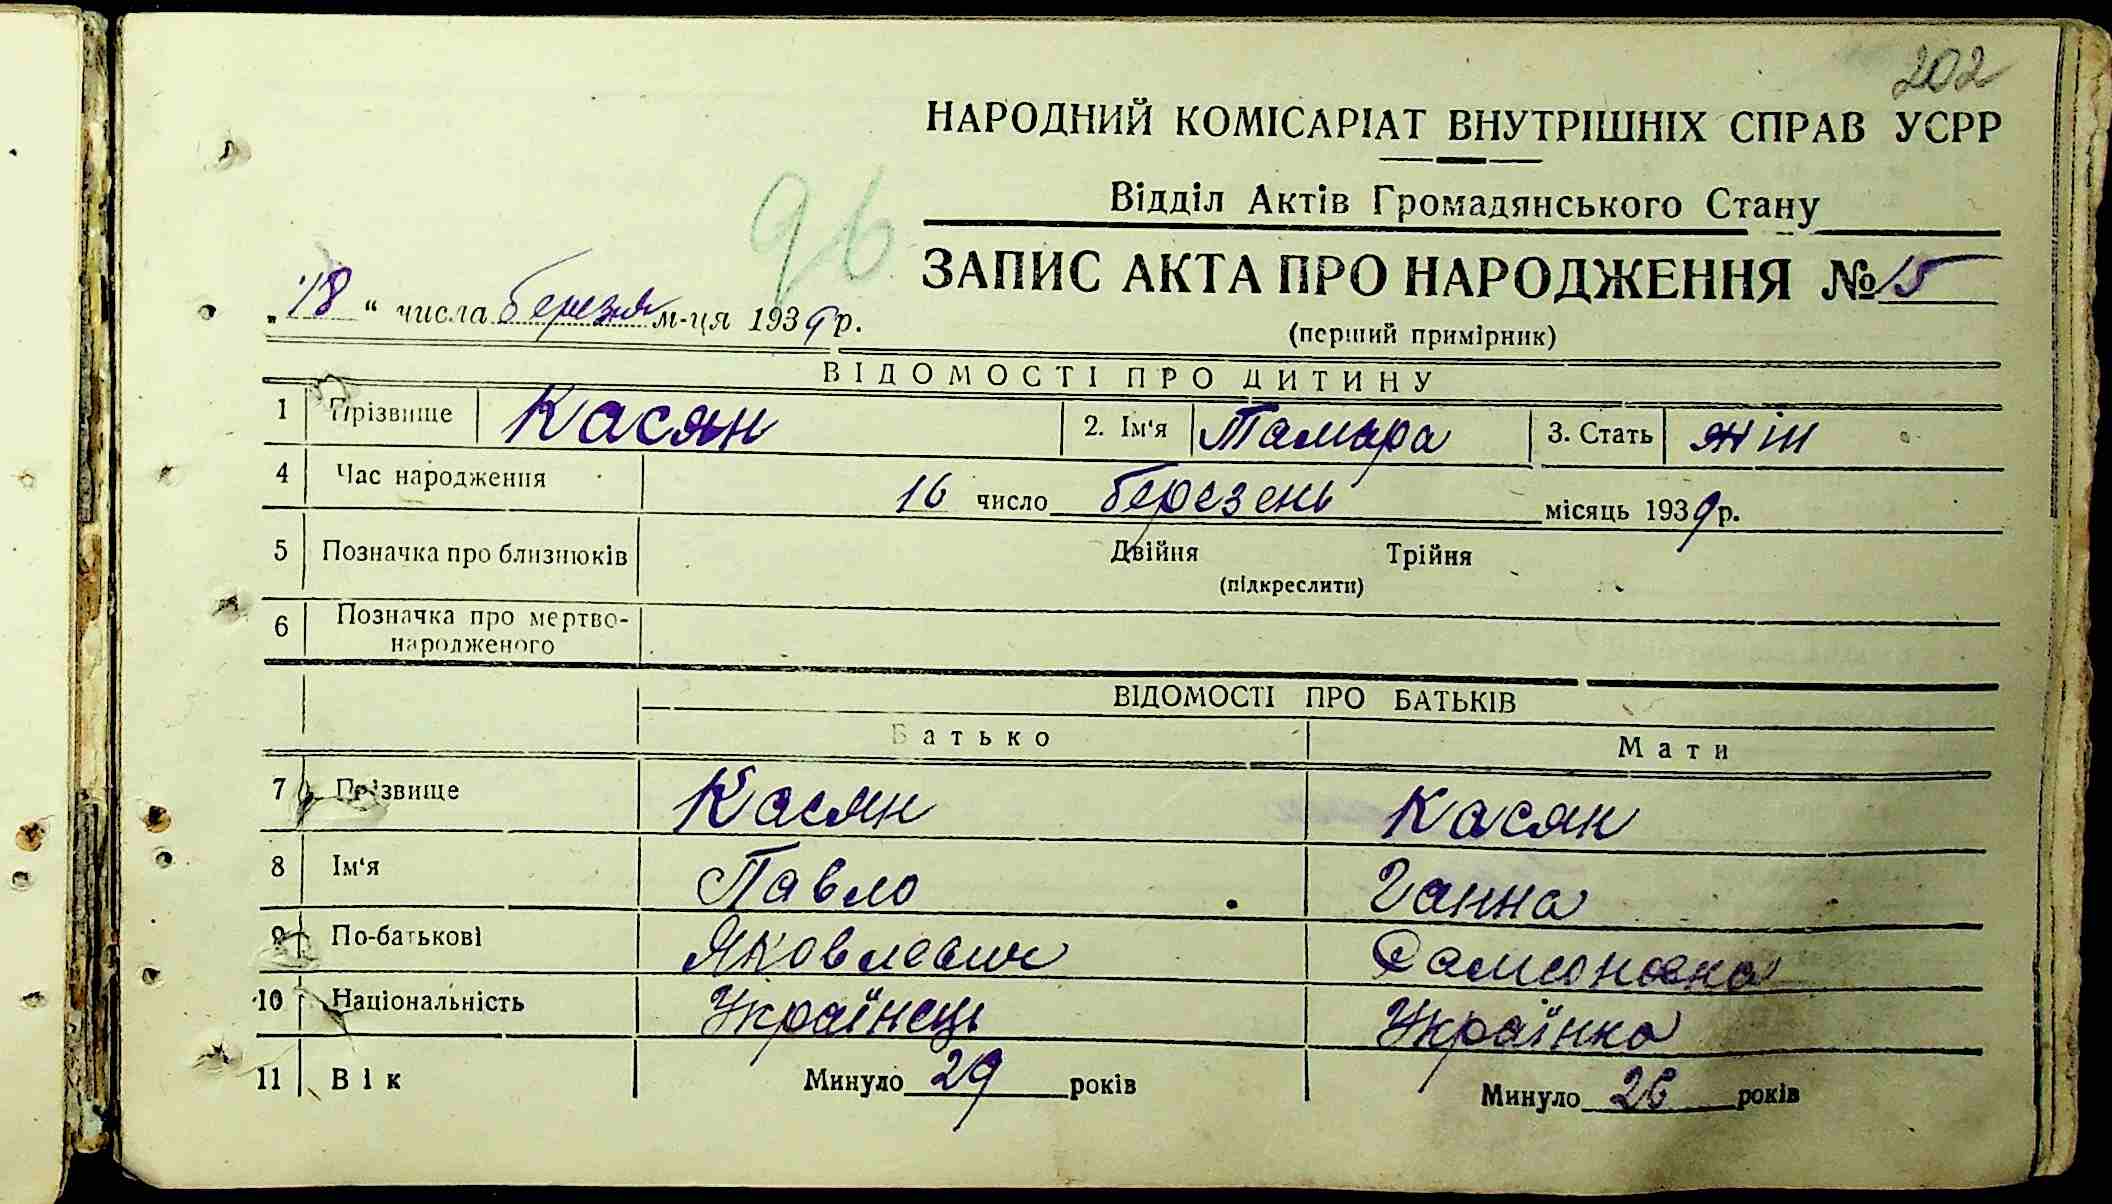 202
НАРОДНИЙ КОМІСАРІАТ ВНУТРІШНІХ СПРАВ УСРР
Відділ Актів Громадянського Стану
96
ЗАПИС АКТА ПРО НАРОДЖЕННЯ № 15
„18“ числа березня м-ця 1939 р.
(перший примірник)
ВІДОМОСТІ ПРО ДИТИНУ
1 Прізвище Касян 2. Ім'я Тамара 3. Стать жін
4 Час народження 16 число березень місяць 1939 р.
5 Позначка про близнюків Двійня Трійня
(підкреслити)
6 Позначка про мертво-
народженого
ВІДОМОСТІ ПРО БАТЬКІВ
Батько Мати
7 Прізвище Касян Касян
8 Ім'я Павло Ганна
9 По-батькові Яковлевич Самсоновна
10 Національність Українець Українка
11 Вік Минуло 29 років Минуло 26 років